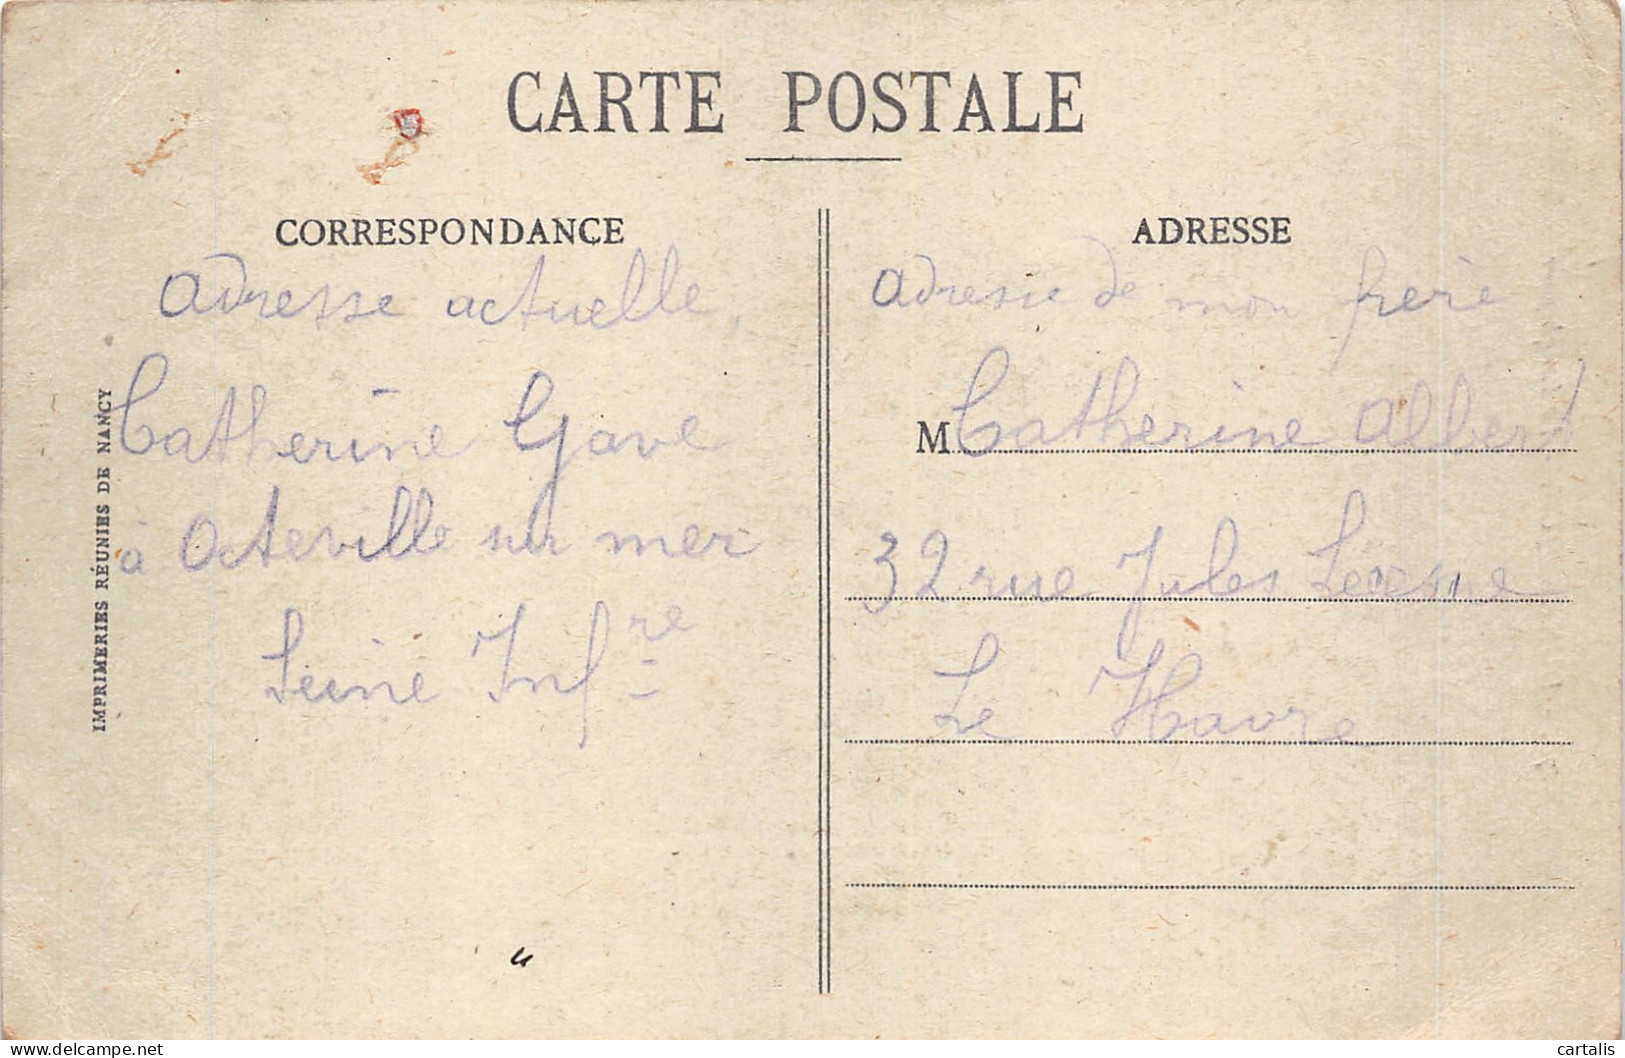 CARTE POSTALE
CORRESPONDANCE
Adresse actuelle,
Catherine Gave
à Octeville sur mer
Seine Infre
IMPRIMERIES RÉUNIES DE NANCY
ADRESSE
Adresse de mon frère
M Catherine Albert
32 rue Jules Lecesne
Le Havre
cartalis